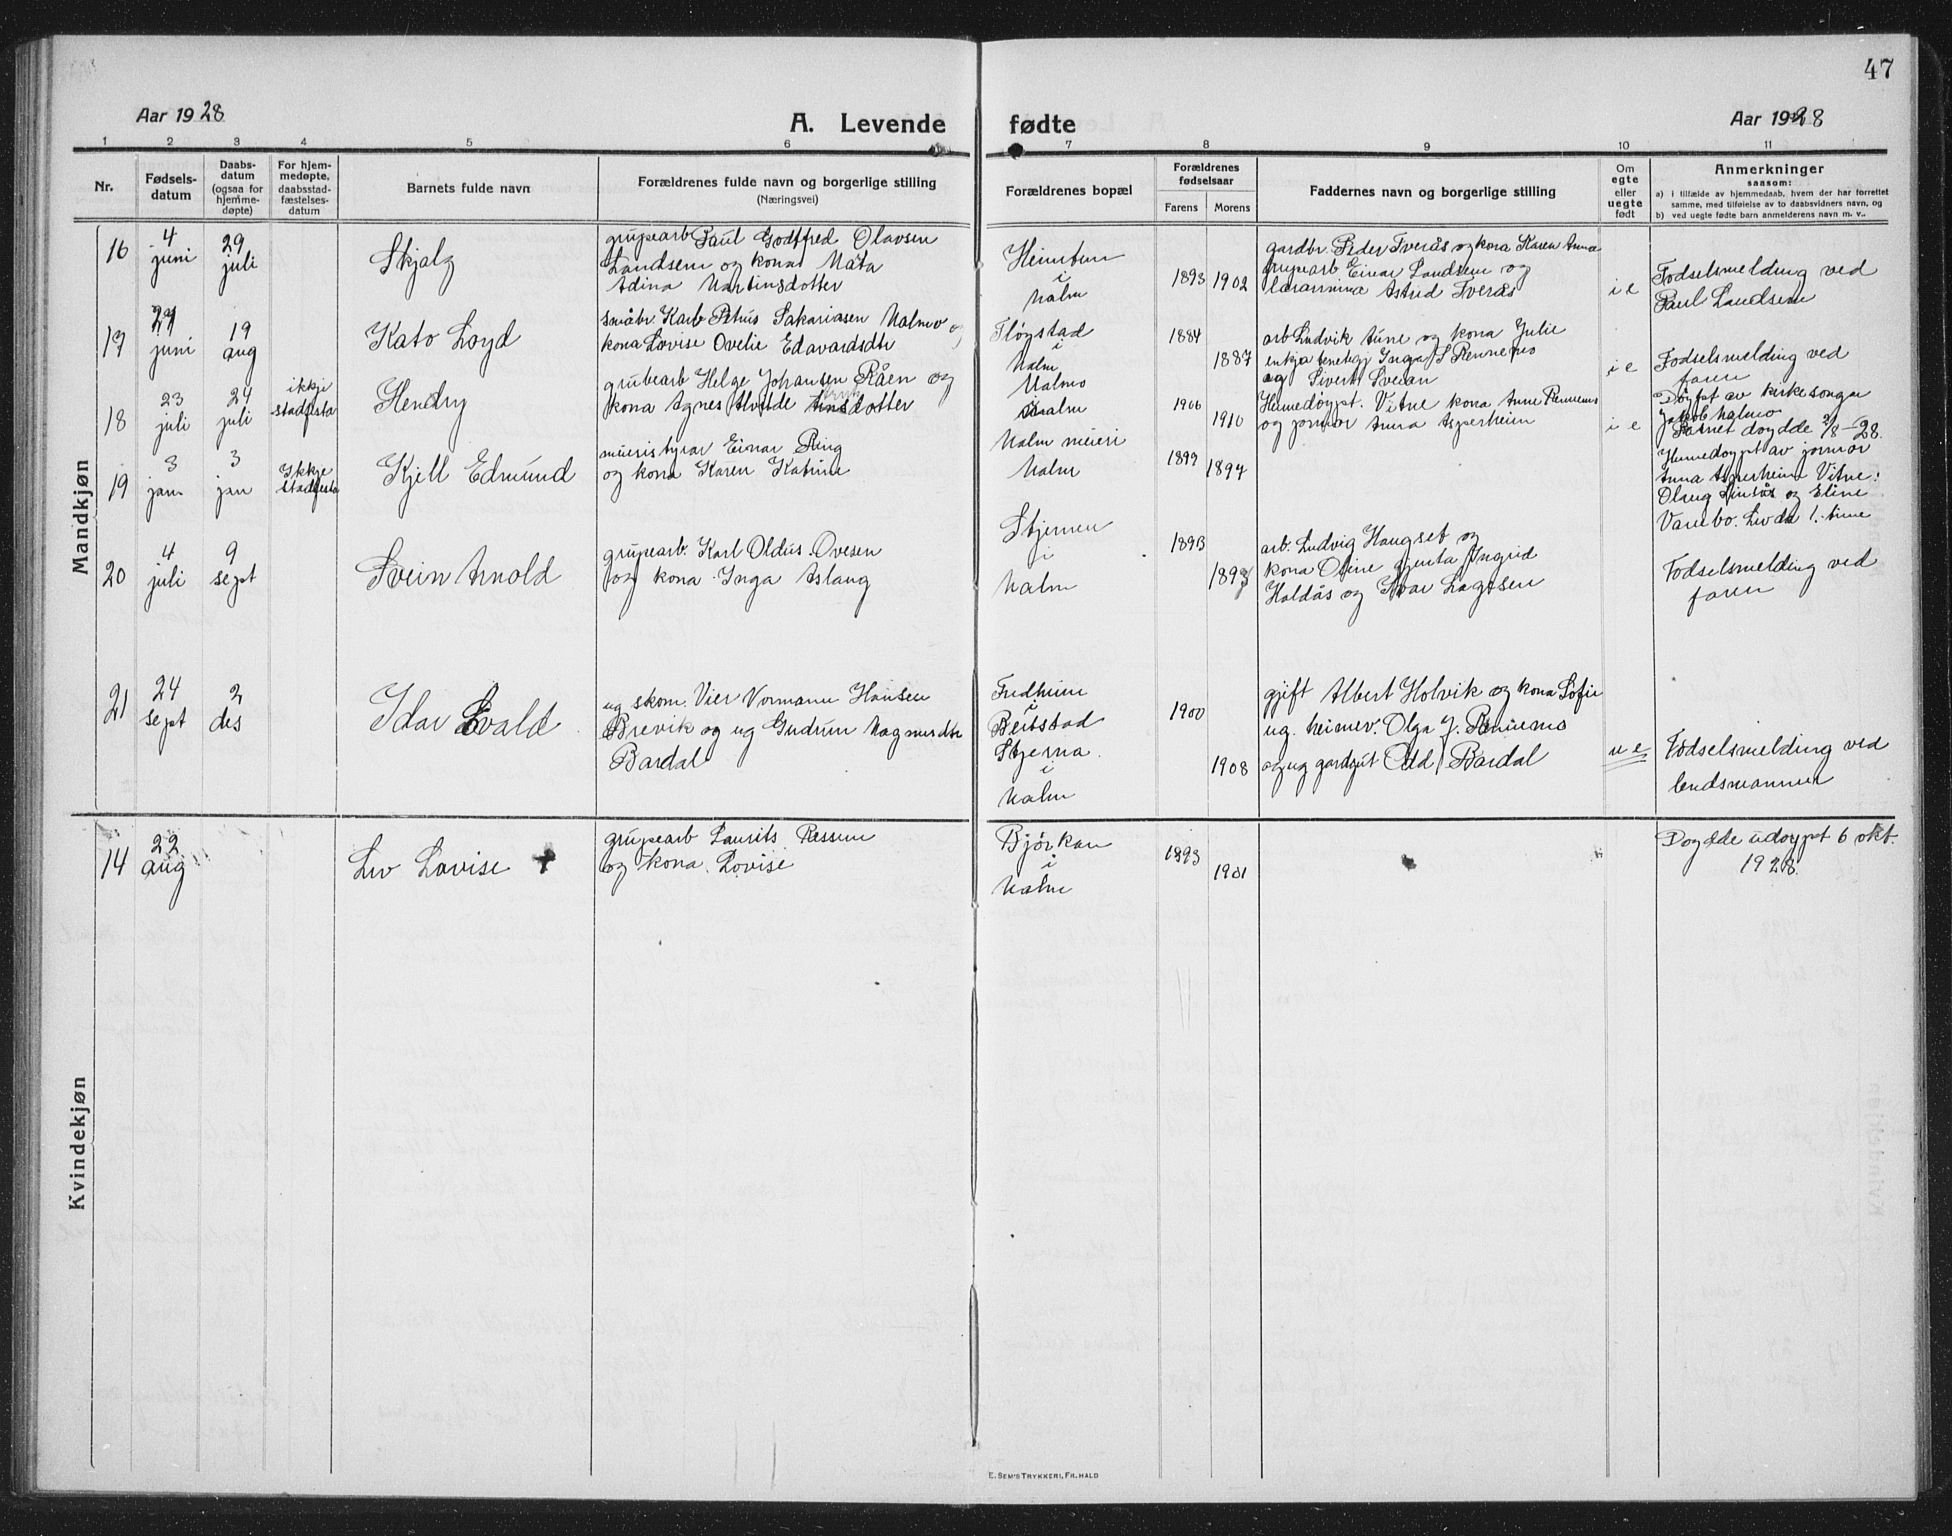 47
Aar 1928
A. Levende fødte
Aar 1928
1 2 3 4 5 6 7 8 9 10 11
Nr.
Fødsels-
datum
Daabs-
datum
(ogsaa for
hjemme-
døpte)
For hjem-
medøpte,
daabsstad-
fæstelses-
datum
Barnets fulde navn
Forældrenes fulde navn og borgerlige stilling
(Næringsvei)
Forældrenes bopæl
Forældrenes
fødselsaar
Farens Morens
Faddernes navn og borgerlige stilling
Om
egte
eller
uegte
født
Anmerkninger
saasom:
a) i tilfælde av hjemmedaab, hvem der har forrettet
samme, med tilføielse av to daabsvidners navn, og
b) ved uegte fødte barn anmelderens navn m. v..
Mandkjøn
16
4
juni
29
juli
Skjalg
grupearb Paul Godtfred Olavsen
Landsem og kona Mata
Adina Martinsdotter
Heimtun
i
Malm
1893 1902
gardbr. Peder Tverås og kona Karen Anna
grupearb Einar Landsem og
lærarinna Astrid Tverås
i e
Fødselsmelding ved
Paul Landsem
17
juni
19
aug
Kato Loyd
småbr. Karb Petrus Sakariasen Malmo og
kona Lovise Ovelie Edavardsdtr
Fløgstad
i
Malm
1884
1887
arb Ludvik Aune og kona Julie
enkja Inga S Rennemo
og Sivert Sveian
i e
Fødselsmelding ved
faren
18
23
juli
24
juli
ikkje
stadfesta
Hendry
grubearb Helge Johansen Råen og
kona Agnes Alvilde
Malmo
Malm
1906
1910
Heimedøypt. Vitne kona Anne Rennemo
og jormor Anna Asperheim
i e
Døypt av kirkesongar
Jakob Malmo
Barnet døydde 2/8-28.
19
3
jan
3
jan
Ikkje
stadfesta
Kjell Edmund
meieristyrar Einar Ring
og kona Karen Katrine
Malm meieri
Malm
1899
1897
Heimedøypt av jormor
Anna Asperheim Vitne:
Olaug Linsås og Eline
Vanebo. Levde 1. time
20
4
juli
9
sept
Svein Arnold
grupearb. Karl Oldus Ovesen
og kona Inga Aslaug
Stjernen
i
Malm
1893
1893
arb. Ludvig Haugset og
kona Otine gjenta Ingrid
Haldås og Ivar Lagesen
Fødselsmelding ved
faren
21
24
sept
2
des
Idar Evald
ug skom. Vier Normann Hansen
Brevik og ug Gudrun Magnusdtr
Bardal
Fredheim
i
Beitstad
Stjerna
i
Malm
1900
1908
gift Albert Holvik og kona Sofie
ug. heimev. Olga J. Rennemo
og ug gardgut Odd Bardal
u e
Fødselsmelding ved
lendsmannen
Kvindekjøn
14
22
aug
Liv Lovise +
grupearb Laurits Røssem
og kona Lovise
Bjørkan
i
Malm
1893
1901
Døydde udøypt 6 okt.
1928.
E. SEM'S TRYKKERI, FR.HALD